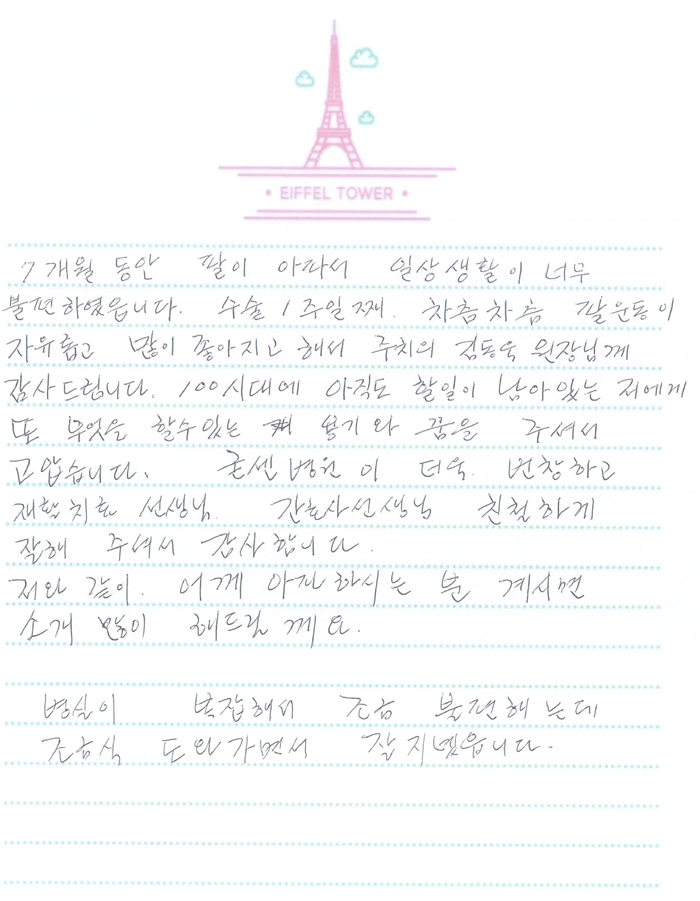 EIFFEL TOWER
7개월 동안 팔이 아파서 일상생활이 너무
불편하였읍니다. 수술 1주일째. 차츰차츰 팔운동이
자유롭고 많이 좋아지고 해서 주치의 김동욱 원장님께
감사드립니다. 100시대에 아직도 할일이 남아있는 저에게
또 무엇을 할수있는 용기와 꿈을 주셔서
고맙습니다. 굳센병원이 더욱. 번창하고
재활치료 선생님. 간호사선생님 친절하게
잘해 주셔서 감사합니다.
저와 같이. 어께 아파하시는 분 계시면
소개 많이 해드릴께요.
병실이 복잡해서 조금 불편해는데
조금식 도와가면서 잘지냈읍니다.